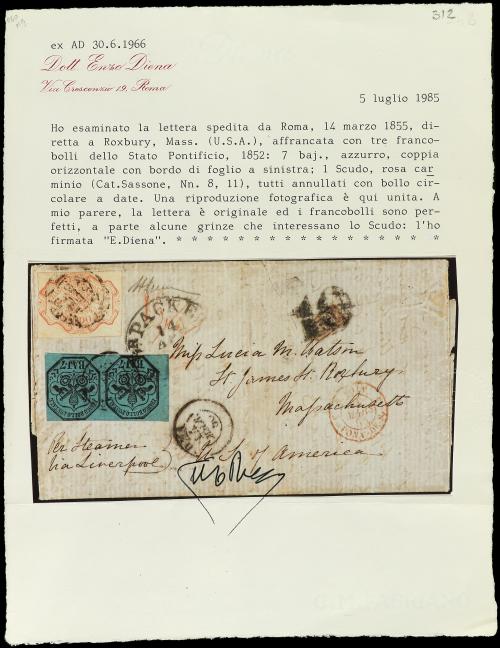 312
ex AD 30.6.1966
Dott. Enzo Diena
Via Crescenzio 19, Roma
5 luglio 1985
Ho esaminato la lettera spedita da Roma, 14 marzo 1855, di-
retta a Roxbury, Mass. (U.S.A.), affrancata con tre franco-
bolli dello Stato Pontificio, 1852: 7 baj., azzurro, coppia
orizzontale con bordo di foglio a sinistra; 1 Scudo, rosa car
minio (Cat.Sassone, Nn. 8, 11), tutti annullati con bollo cir-
colare a date. Una riproduzione fotografica è qui unita. A
mio parere, la lettera è originale ed i francobolli sono per-
fetti, a parte alcune grinze che interessano lo Scudo: l'ho
firmata "E.Diena". * * * * * * * * * * * * * * * * * * *
PACKE
14
BAJ 7
BAJ 7
Miss Lucia M. Watson
St. James St. Roxbury
Massachusetts
Per Steamer
via Liverpool
U. S. of America